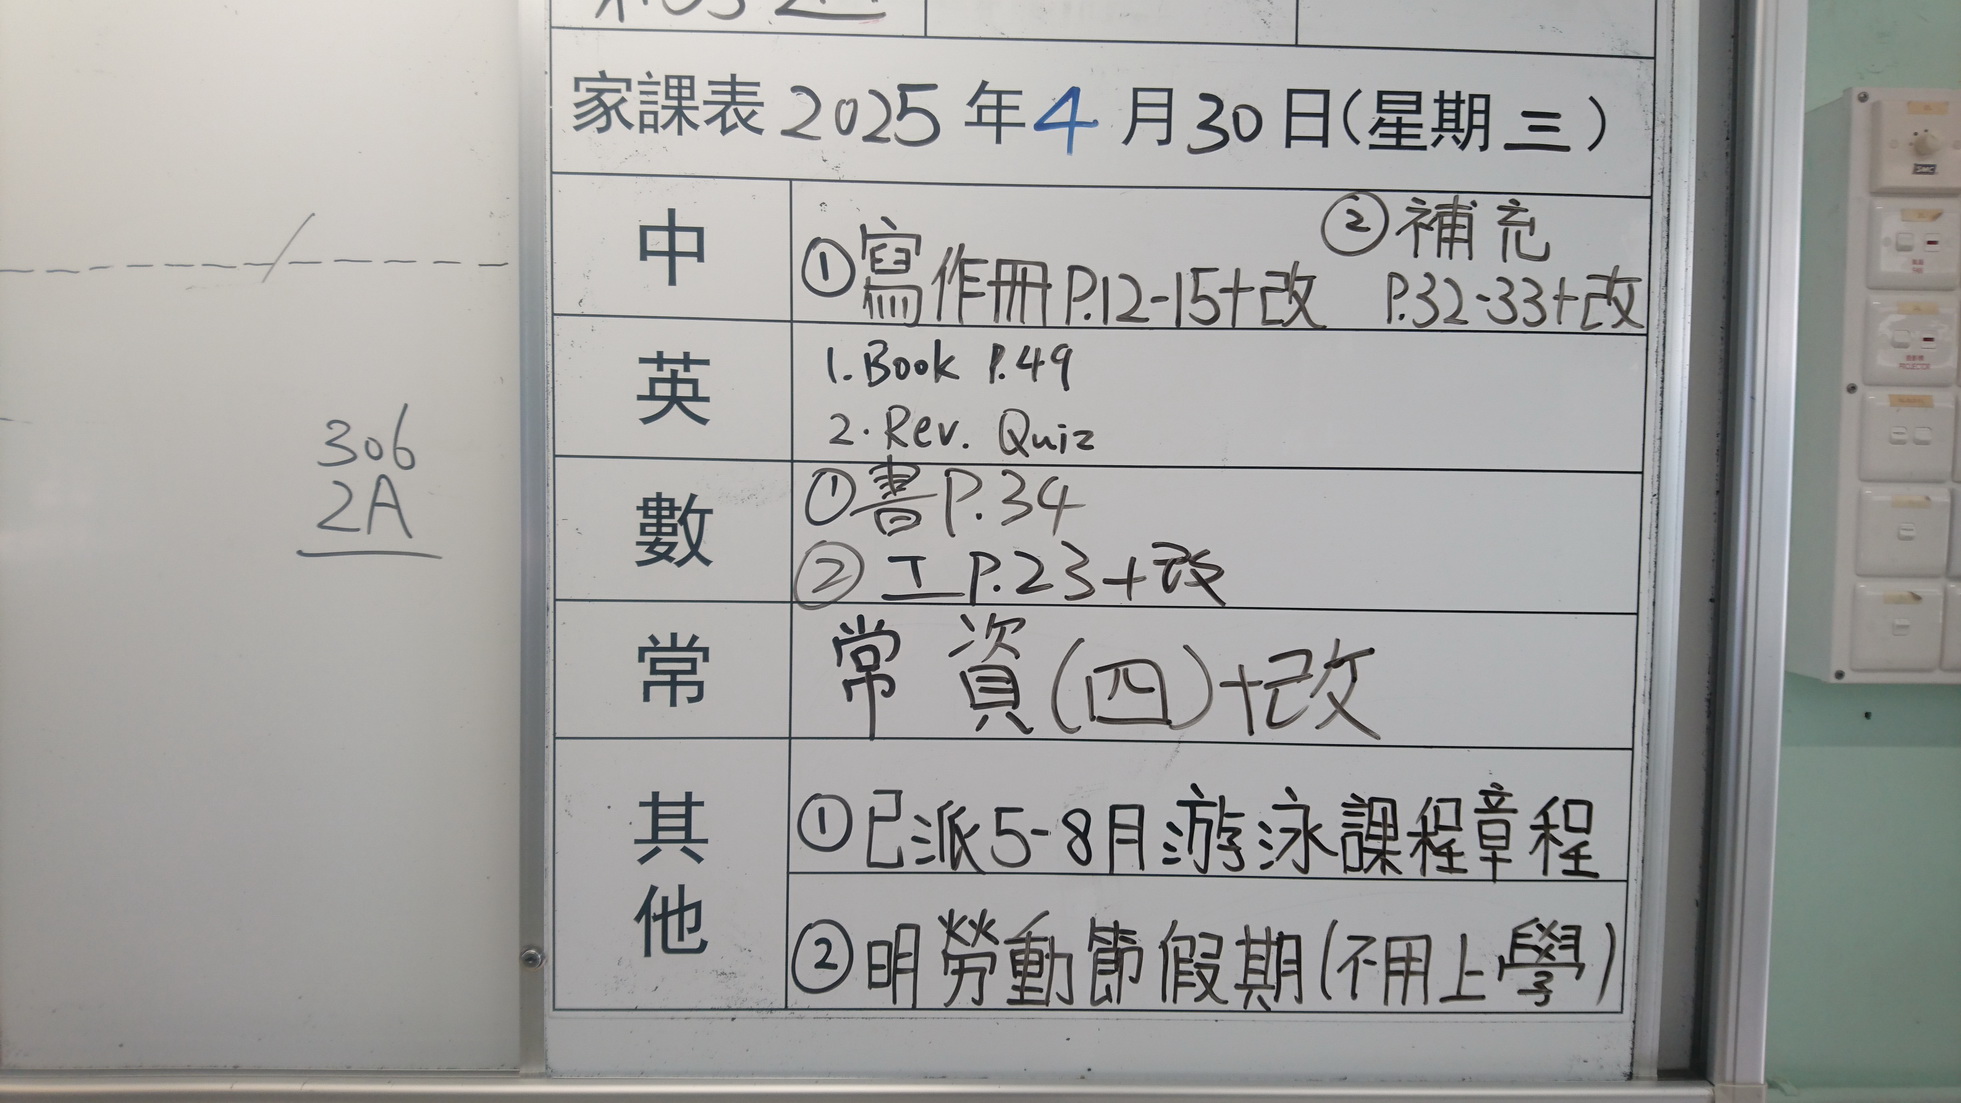 306
2A
家課表 2025 年 4 月 30 日(星期 三)
中
①寫作冊P.12-15+改
②補充
P.32-33+改
英
1. Book P.49
2. Rev. Quiz
數
①書P.34
②工P.23+改
常
常資(四)+改
其他
①已派5-8月游泳課程章程
②明勞動節假期(不用上學)